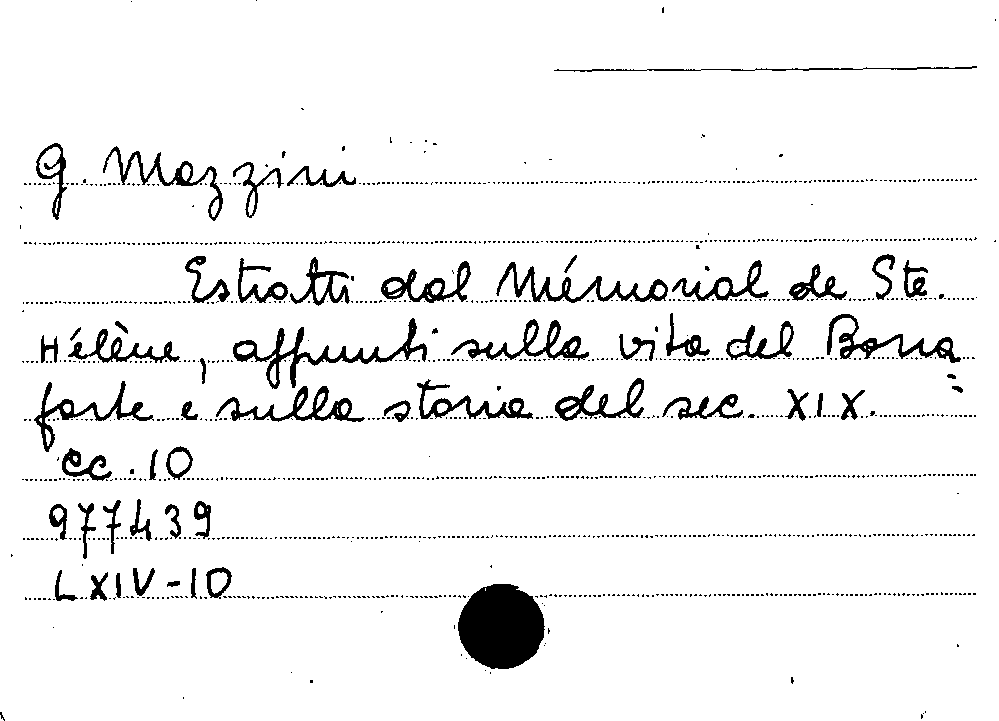 G. Mazzini
Estratti dal Mémorial de Ste.
Hélène, appunti sulla vita del Bona=
parte e sulla storia del sec. XIX.
cc. 10
977439
LXIV-10